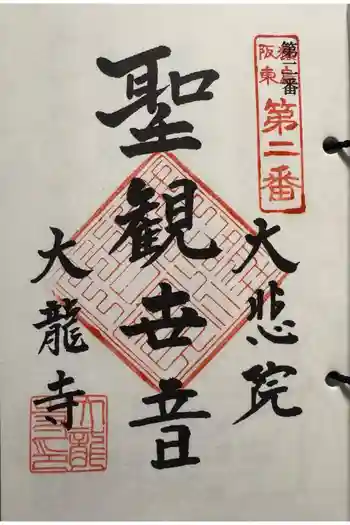 第二番
阪東
第二番
大悲院
聖観世音
大龍寺